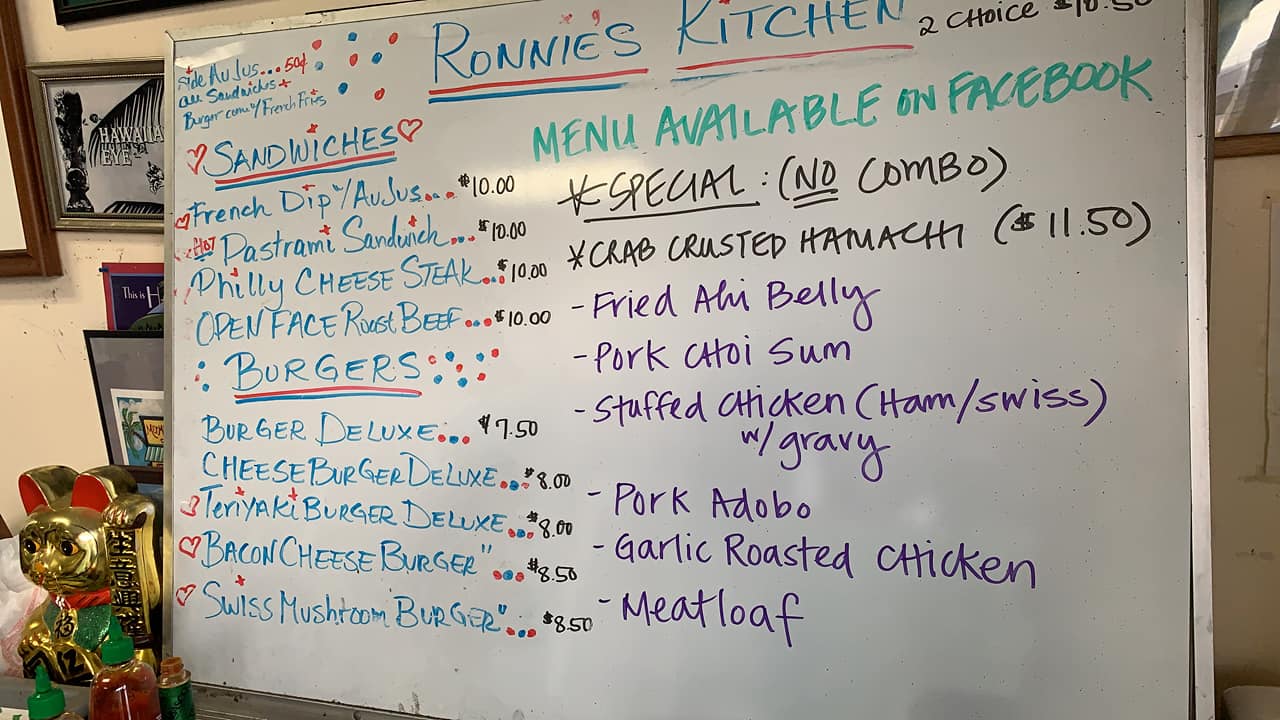 RONNIE'S KITCHEN
2 CHOICE $10.50
Side Au Jus...50¢
all Sandwichs +
Burger come w/ French Fries
MENU AVAILABLE ON FACEBOOK
SANDWICHES
French Dip w/ Au Jus... $10.00
HOT Pastrami Sandwich... $10.00
Philly CHEESE STEAK... $10.00
OPEN FACE Roast BEEF... $10.00
BURGERS
BURGER DELUXE... $7.50
CHEESE BURGER DELUXE... $8.00
TeriYaki BURGER DELUXE... $8.00
BACON CHEESE BURGER"... $8.50
Swiss Mushroom BURGER"... $8.50
*SPECIAL: (NO COMBO)
*CRAB CRUSTED HAMACHI ($11.50)
- Fried Ahi Belly
- Pork CHoi Sum
- Stuffed CHicken (Ham/swiss)
w/ gravy
- Pork Adobo
- Garlic Roasted CHicken
- Meatloaf
HAWAIIAN
EYE
This is H
生意興隆
福